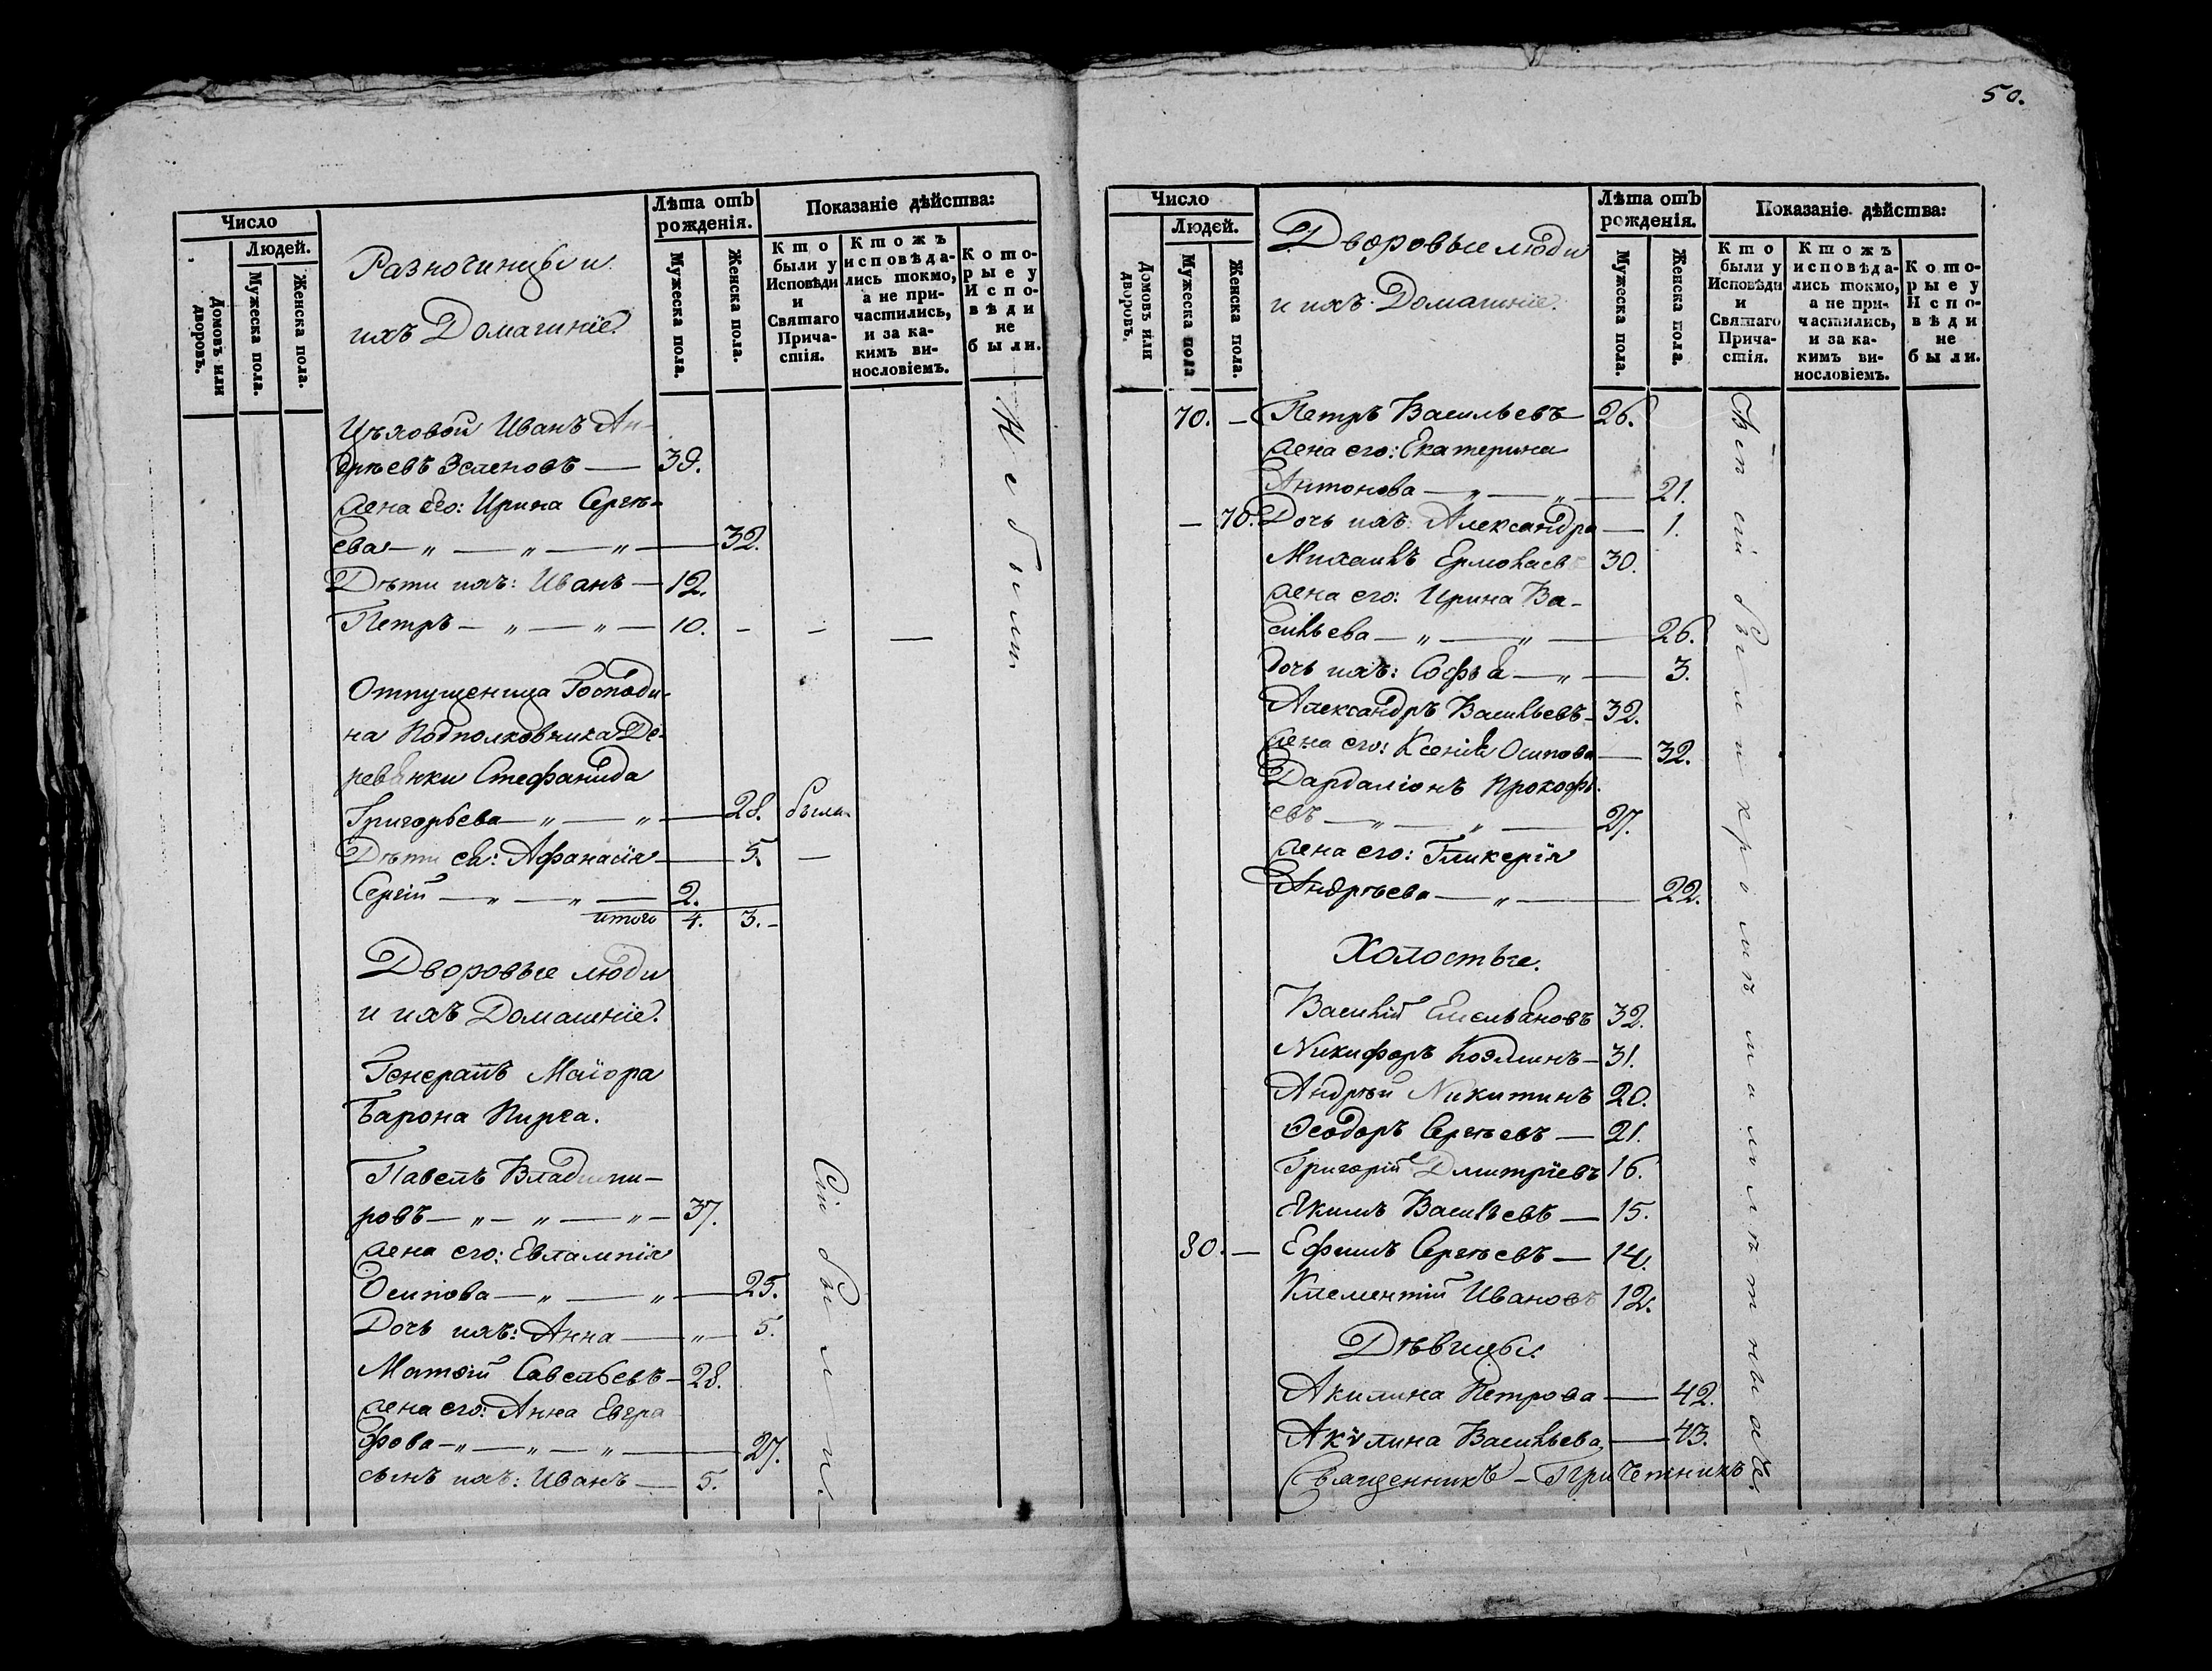 Число
Людей.
Домовъ или дворовъ.
Мужеска пола.
Женска пола.
Разночинцы и
ихъ Домашніе.
Лѣта отъ
рожденія.
Мужеска пола.
Женска пола.
Показаніе дѣйства:
Кто
были у
Исповѣди
и
Святаго
Прича-
стія.
Ктожъ
исповѣда-
лись токмо,
а не при-
частились,
и за ка-
кимъ ви-
нословіемъ.
Кото-
рые у
Испо-
вѣди
не
были.
Цѣховой Иванъ Ан-
дреевъ — 39.
жена его: Ирина Сергѣ-
ева — „ — „ — „ — 32.
Дѣти ихъ: Иванъ — 12.
Петръ — „ — „ — 10. - - —
Не были.
Отпущеница Господи-
на Подполковника Де-
ревянки Стефанида
Григорьева — „ — „ — 28. были
Дѣти ея: Афанасія — 5. —
Сергій — „ — „ — 2.
итого 4. 3. -
Дворовые люди
и ихъ Домашніе.
Генералъ Маіора
Барона Пирха.
Павелъ Владими-
ровъ — „ — „ — „ — 37.
жена его: Евлампія
Осипова — „ — „ — 25.
Дочь ихъ: Анна — „ — 5.
Матѳій Савельевъ — 28.
жена его: Анна Евгра
фова — „ — „ — „ — 27.
сынъ ихъ: Иванъ — 5.
Сіи были.
50.
Число
Людей.
Домовъ или дворовъ.
Мужеска пола
Женска пола.
Дворовые люди
и ихъ Домашніе.
Лѣта отъ
рожденія.
Мужеска пола.
Женска пола.
Показаніе дѣйства:
Кто
были у
Исповѣди
и
Святаго
Прича-
стія.
Ктожъ
исповѣда-
лись токмо,
а не при-
частились,
и за ка-
кимъ ви-
нословіемъ.
Кото-
рые у
Испо-
вѣди
не
были.
70. — Петръ Васильевъ — 26.
жена его: Екатерина
Антонова — „ — „ — 21.
— 70. Дочь ихъ: Александра — 1.
Михаилъ Ермолаевъ 30.
жена его: Ирина Ва-
сильева — „ — „ — 26.
дочь ихъ: Софья — „ — 3.
Александръ Васильевъ — 32.
жена его: Ксенія Осипова — 32.
Дардаліонъ Прокофь-
евъ — „ — „ — 27.
жена его: Гликерія
Андреева — „ — 22.
Холостые.
Василій Емельяновъ 32.
Никифоръ Козминъ — 31.
Андрей Никитинъ 20.
Ѳеодоръ Сергѣевъ — 21.
Григорій Дмитріевъ 16.
Якимъ Васильевъ — 15.
80. — Ефимъ Сергѣевъ — 14.
Климентій Ивановъ 12.
Дѣвицы.
Акилина Петрова — 42.
Акѵлина Васильева, — 43.
Священникъ — Причетникъ
сіи были кромѣ малолѣтныхъ.